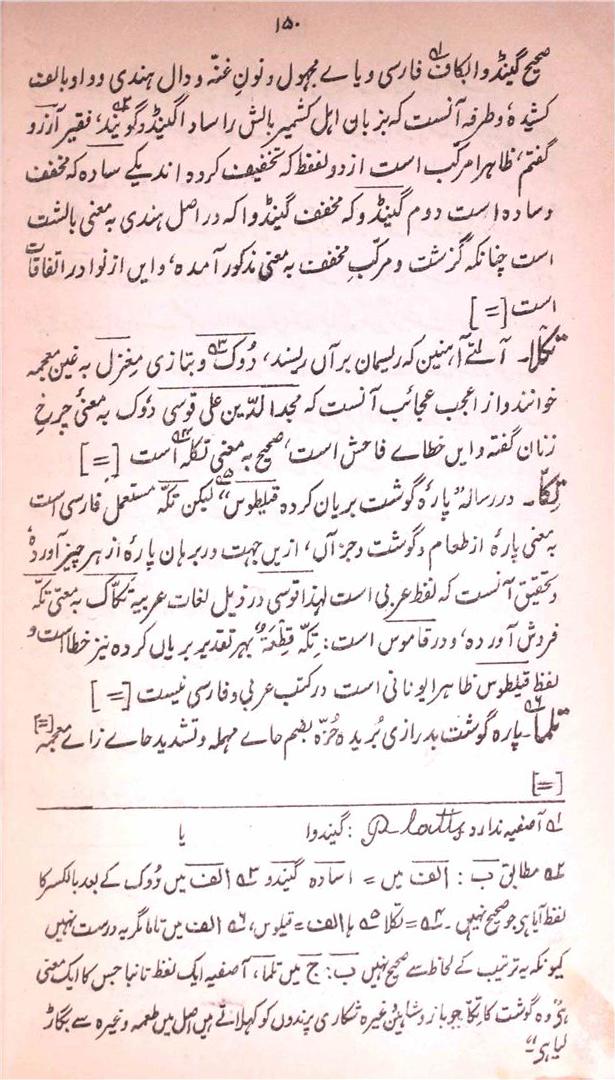 ۱۵۰
صحیح گینڈوا بکاف فارسی و یاے مجہول و نونِ غنّہ و دال ہندی و واو بالف
کشیدہ، و طرفہ آنست کہ بزبان اہل کشمیر بالش را ساد اگینڈو گویند، فقیر آرزو
گفتم، ظاہرا مرکب است از دو لفظ کہ تخفیف کردہ اند یکے سادہ کہ مخفف
و سادہ است دوم گینڈو کہ مخفف گینڈوا کہ در اصل ہندی بہ معنی بالشت
است چنانکہ گزشت و مرکّبِ مخفف بہ معنی مذکور آمدہ، و ایں از نوادر اتفاقات
است [=]
تکلا۔ آلتے آہنین کہ ریسمان بر آں ریسند، دُوک و بتازی مِغزل بہ غین معجمہ
خوانند و از اعجب عجائب آنست کہ مجد الدین علی قوسی دُوک بہ معنیٔ چرخِ
زنان گفتہ و ایں خطاے فاحش است، صحیح بہ معنی تکلہ است [=]
تِکّا۔ در رسالہ "پارۂ گوشت بریان کردہ قیلطوس" لیکن تکّہ مستعمل فارسی است
بہ معنی پارہ از طعام و گوشت و جز آں، ازیں جہت در برہان پارہ از ہر چیز آوردہ،
و تحقیق آنست کہ لفظ عربی است لہٰذا قوسی در ذیل لغات عربیہ تکاک بہ معنی تکّہ
فروش آوردہ، و در قاموس است: تِکّہ قِطْعَۃٌ، بہر تقدیر بریاں کردہ نیز خطا است و
لفظ قیلطوس ظاہرا یونانی است در کتب عربی و فارسی نیست [=]
تلما۔ پارہ گوشت بدرازی بُریدہ حُزّہ بضم حاے مہملہ و تشدید حاے زاے معجمہ [=]
[=]
۱ آصفیہ ندارد Platts : گیندوا یا
۲ مطابق ب : الف میں = اسادہ گیندو ۳ الف میں دُوک کے بعد بالکسر کا
لفظ آیا ہی جو صحیح نہیں۔ ۴ = تکلا ۵ ہا الف = قیلوس، ۶ الف میں تاما مگر یہ درست نہیں
کیونکہ یہ ترتیب کے لحاظ سے صحیح نہیں ب : ج میں تلما، آصفیہ ایک لفظ تانبا جس کا ایک معنی
ہی "وہ گوشت کا تِکّا جو باز و شاہین وغیرہ شکاری پرندوں کو کھلاتے ہیں اصل میں طعمہ وغیرہ سے بگاڑ
لیا ہی"۔